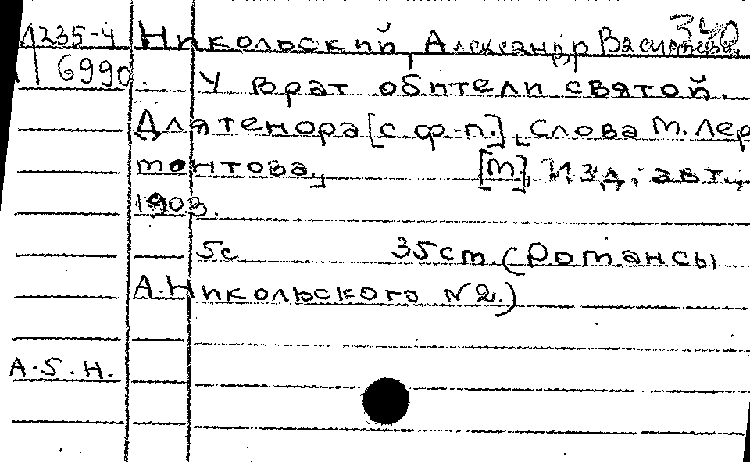 1235-4 Никольский, Александр Васильевич 340
6990. У врат обители святой.
Для тенора [с ф-п.], Слова М. Лер
монтова, [М], Изд. авт.,
1903.
5с 35cm (Романсы
А. Никольского N 2.)
A.S.H.